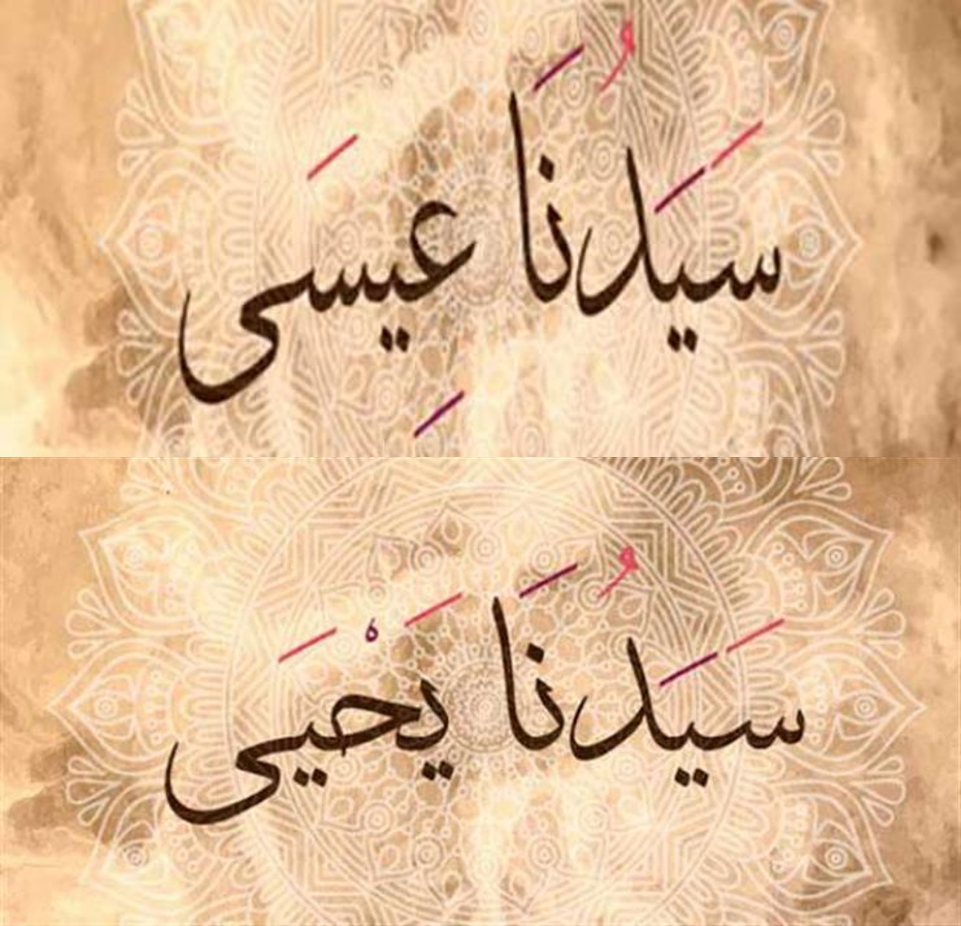 سَيَدُنَا عِيسَى
سَيَدُنَا يَحْيَى